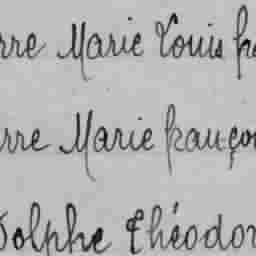 rre Marie Louis fra
rre Marie françoi
dolphe Théodor